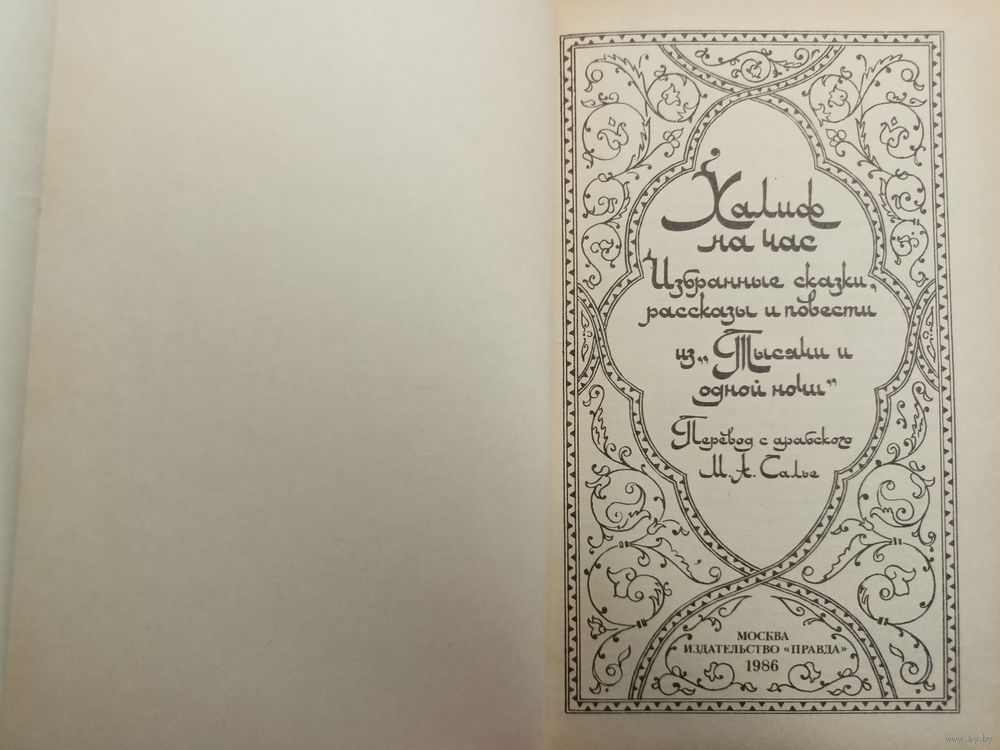 Халиф
на час
Избранные сказки,
рассказы и повести
из „Тысячи и
одной ночи”
Перевод с арабского
М. А. Салье
МОСКВА
ИЗДАТЕЛЬСТВО «ПРАВДА»
1986
www.ay.by